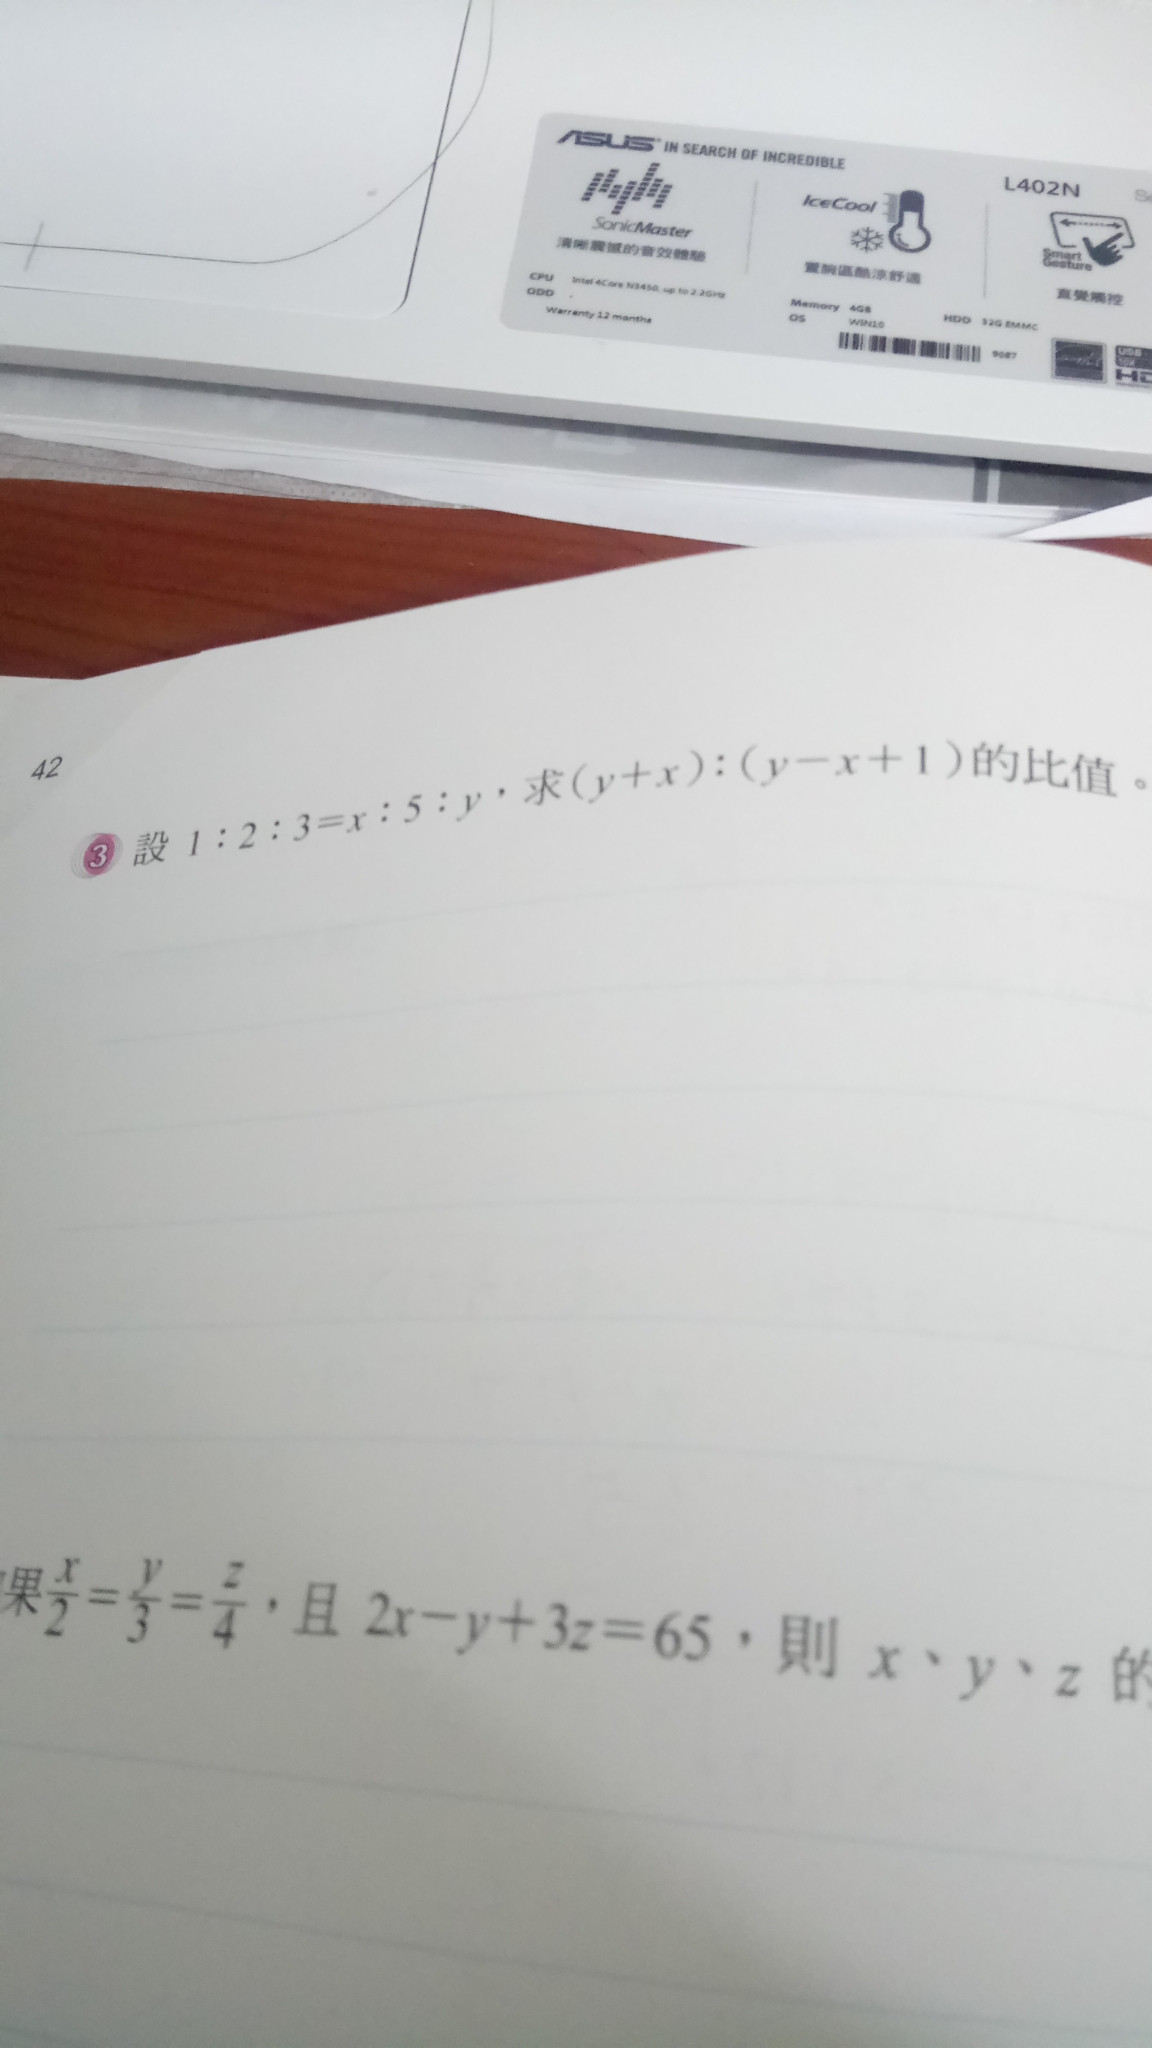 ASUS IN SEARCH OF INCREDIBLE
L402N
SonicMaster
清晰震撼的音效體驗
IceCool
置腕區酷涼舒適
Smart Gesture
直覺觸控
CPU Intel 4Core N3450, up to 2.2GHz
ODD
Warranty 12 months
Memory 4GB
OS WIN10
HDD 32G EMMC
9087
USB
HD
42
3 設 1:2:3=x:5:y,求(y+x):(y-x+1)的比值。
果x/2=y/3=z/4,且 2x-y+3z=65,則 x、y、z 的